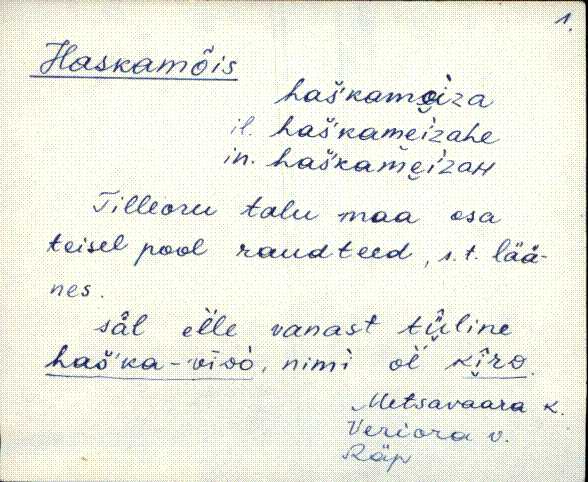 1.
Haskamõis
haš'kamęiza
il. haš'kameizahe
in. haš'kamęizaн
Tilleoru talu maa osa
teisel pool raudteed, s.t. lää-
nes.
säl elle vanast tüline
haš'ka-vi̮i̮ò, nimi ol' kîrə.
Metsavaara k.
Veriora v.
Räp